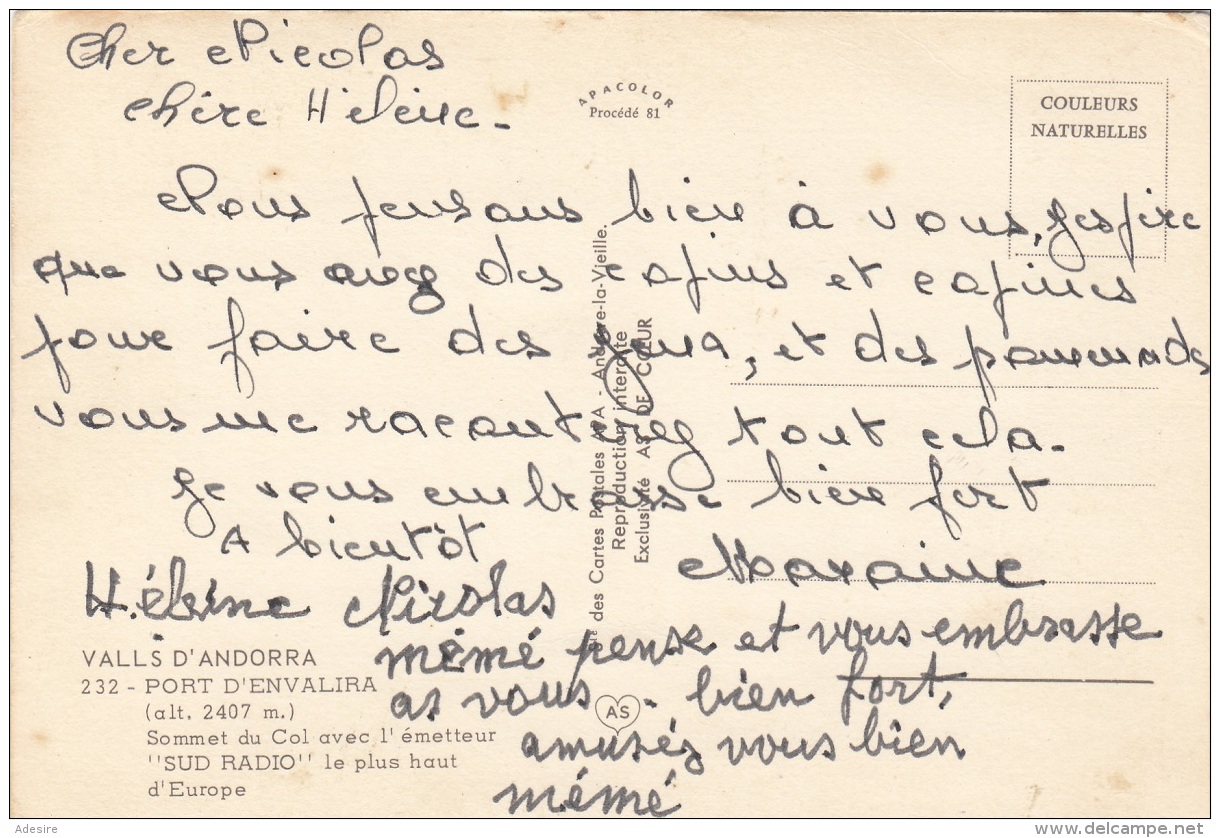 Cher Nicolas
chère Hélène -
APACOLOR
Procédé 81
COULEURS
NATURELLES
Nous pensons bien à vous, j'espère
que vous avez des copins et copines
pour faire des jeux, et des promenades
vous me raconterez tout cela.
Je vous embrasse bien fort
A bientôt
Maraine
Hélène Nicolas
mémé pense et vous embrasse
as vous. bien fort,
amusés vous bien
mémé
VALLS D'ANDORRA
232 - PORT D'ENVALIRA
(alt. 2407 m.)
Sommet du Col avec l'émetteur
"SUD RADIO" le plus haut
d'Europe
Cie des Cartes Postales APA - Andorre-la-Vieille.
Reproduction interdite
Exclusivité AS DE CŒUR
AS
Adesire
www.delcampe.net